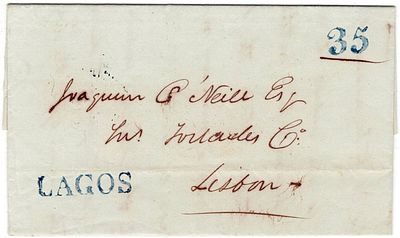 35
Joaquim O'Neill Esq
Torlades Co
LAGOS
Lisbon